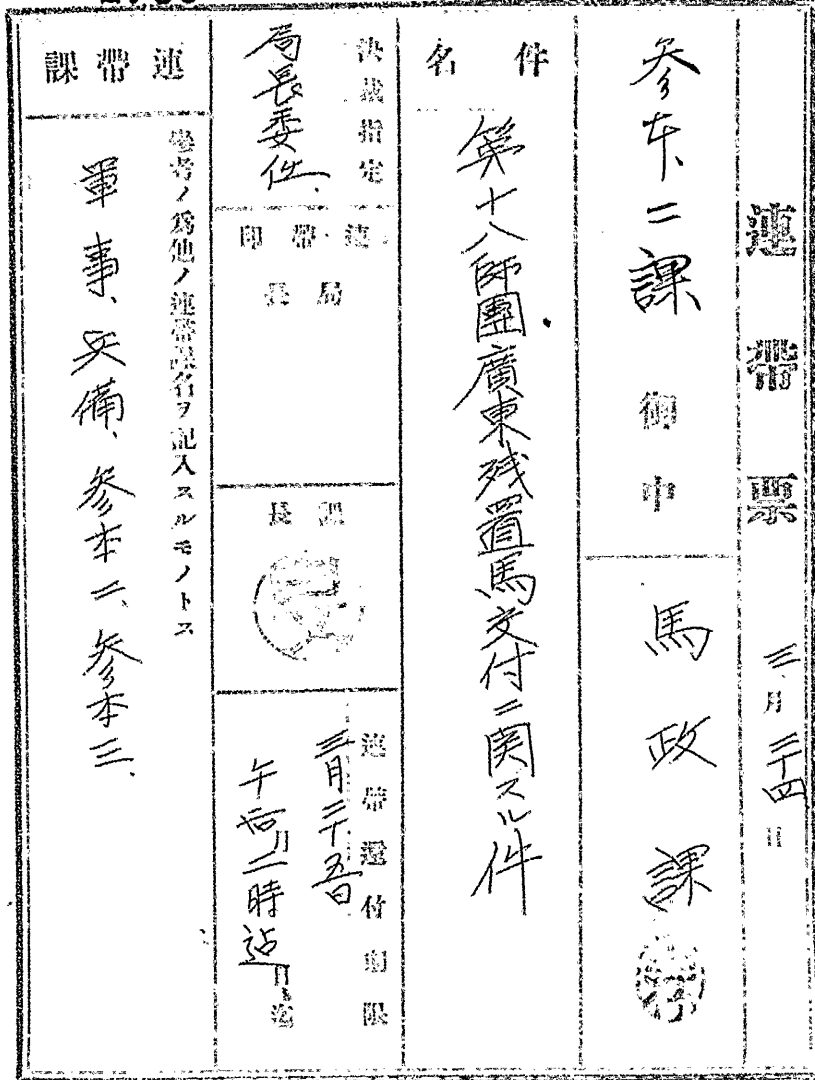 連帶票
三月二十四日
参本二課 御中
馬政課
件名
第十八師團廣東残置馬交付ニ関スル件
決裁指定
局長委任、
連帶印
局長
課長
連帶還付期限
三月二十五日
午后二時迄
連帶課
參考ノ爲他ノ連帶課名ヲ記入スルモノトス
軍事、兵備、参本二、参本三、